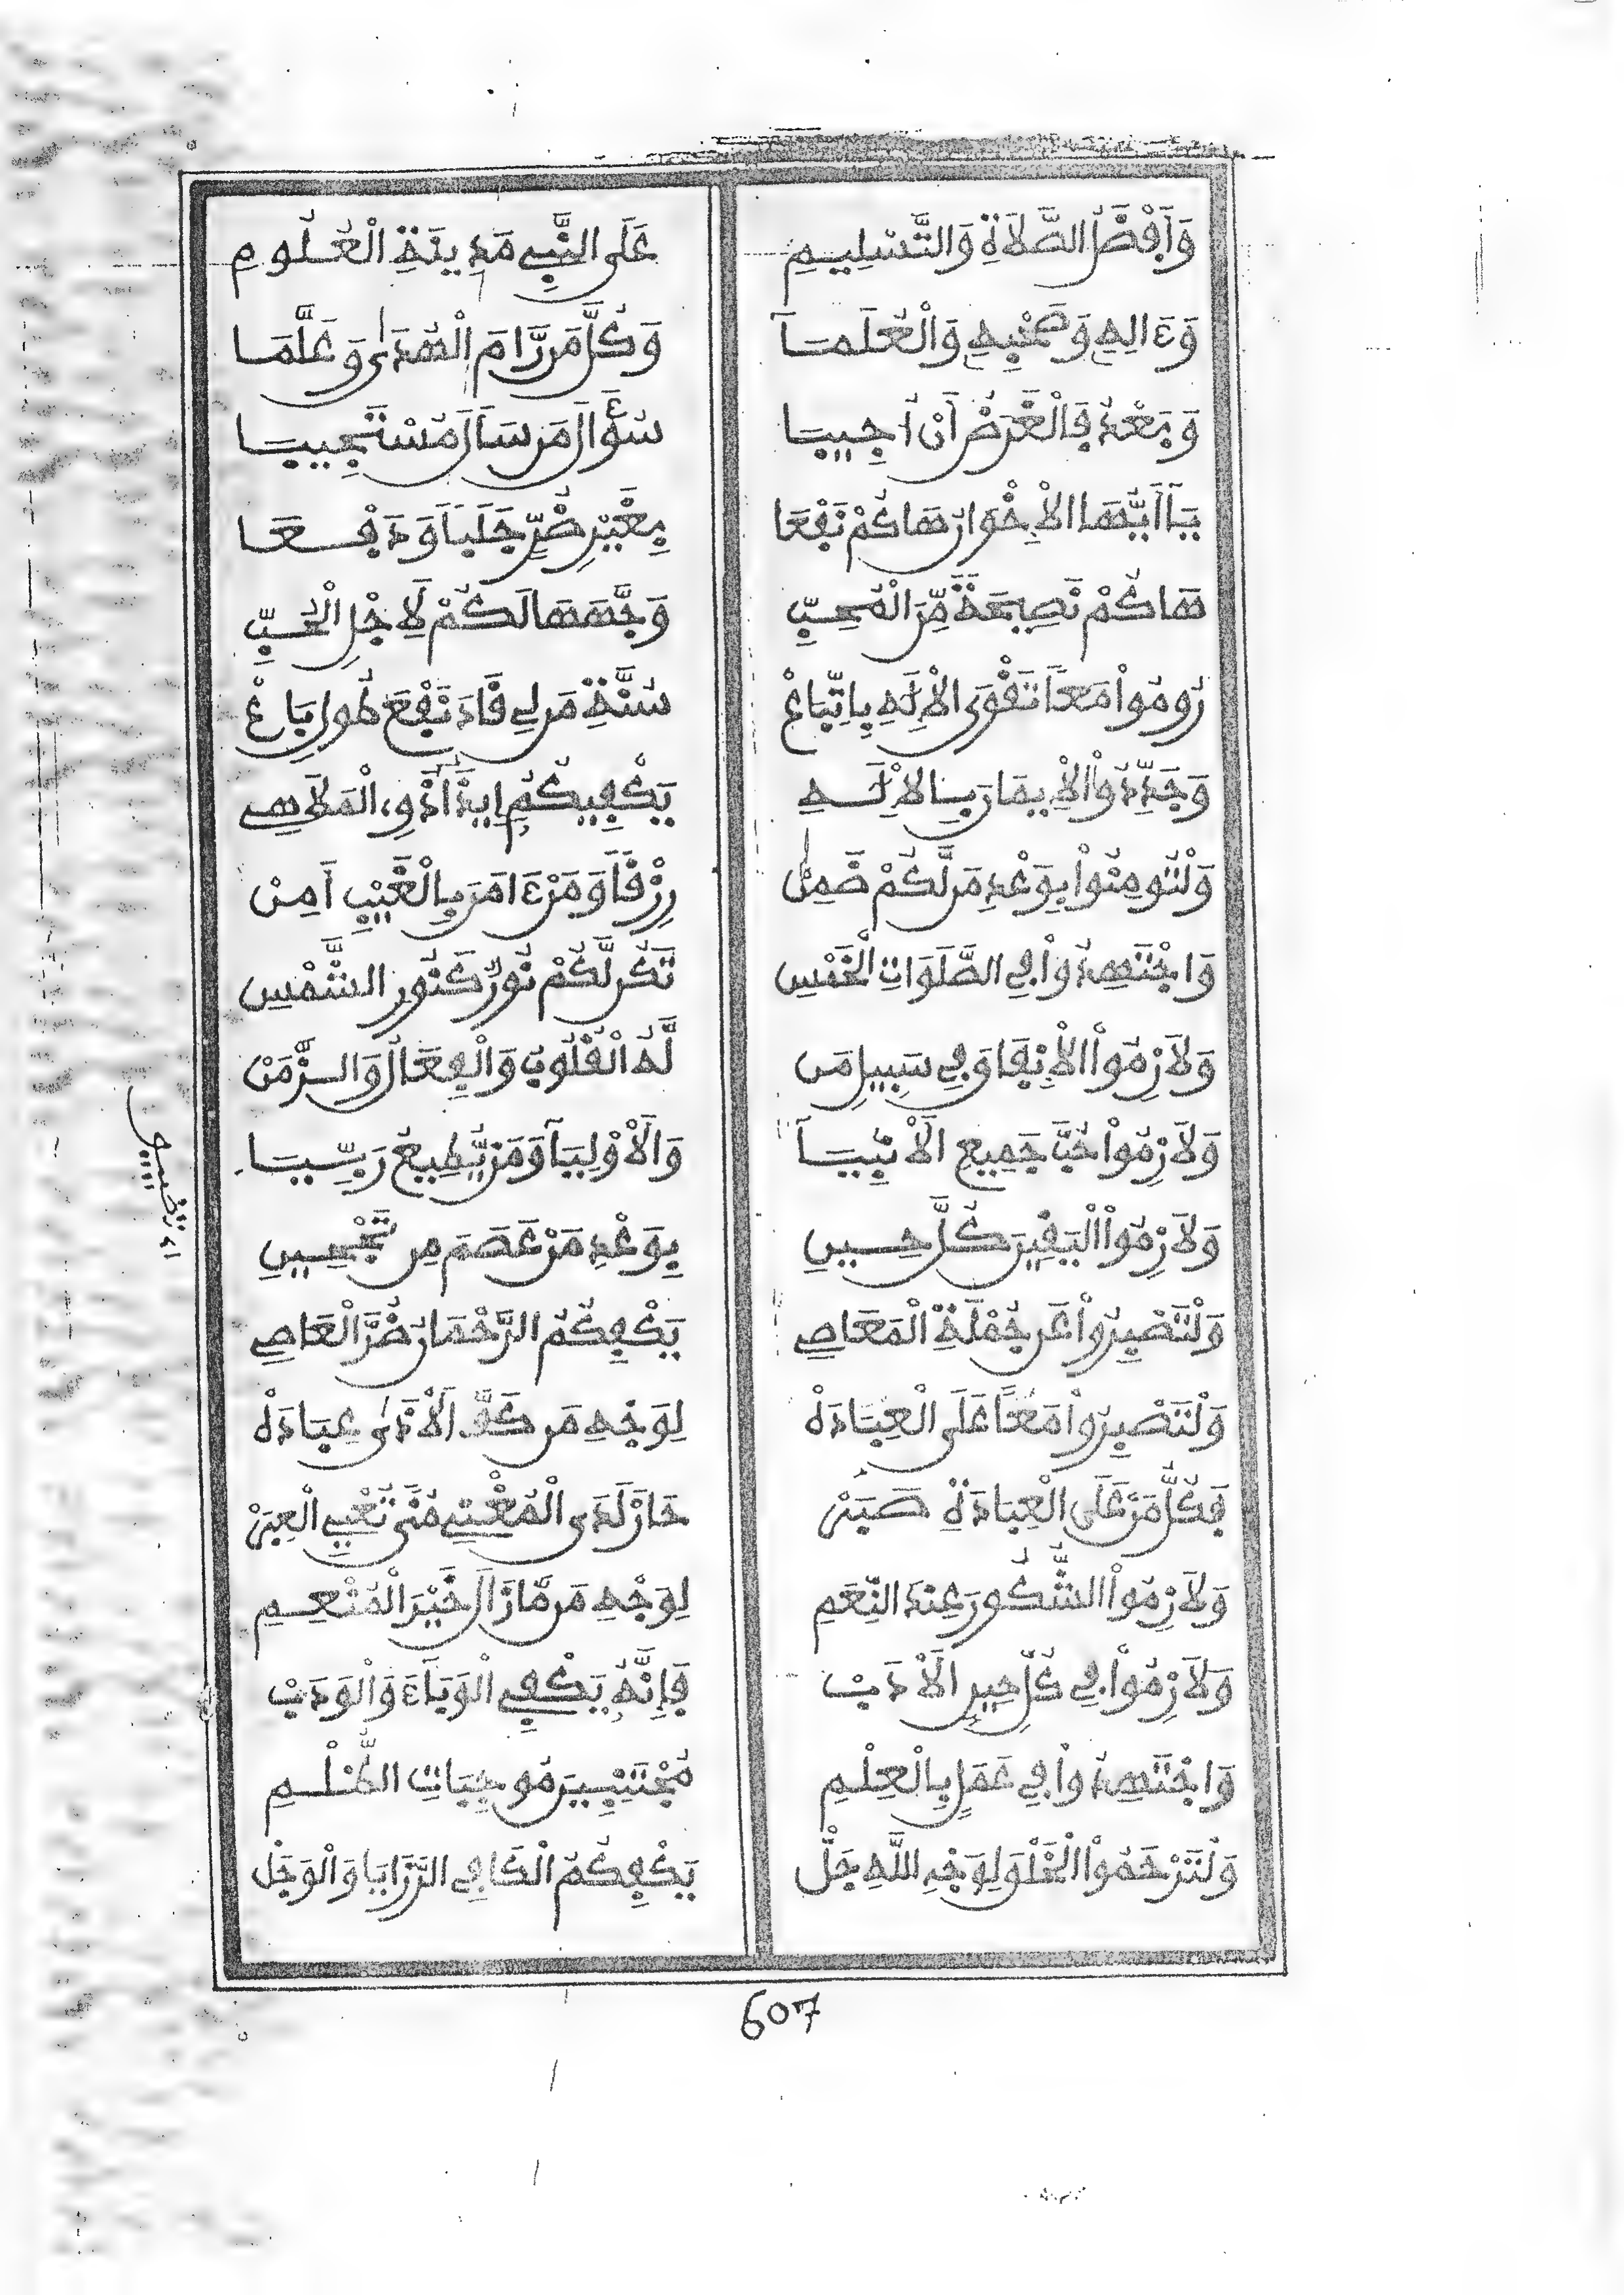 وَأَفْضَلُ الصَّلَاةِ وَالتَّسْلِيمِ عَلَى النَّبِي مَدِينَةِ الْعُلُومِ
وَءَالِهِ وَصَحْبِهِ وَالْعُلَمَآ وَكُلِّ مَن رَّامَ الْهُدَى وَعَلَّمَا
وَبَعْدُ فَالْغَرَضُ أَنْ أُجِيبَا سُؤَالَ مَن سَأَلَ مُسْتَجِيبَا
يَآ أَيُّهَا الْإِخْوَانُ هَاكُمْ نَفْعَا بِغَيْرِ ضُرٍّ جَلَبًا وَدَفْعَا
هَاكُمْ نَصِيحَةً مِّنَ الْمُحِبِّ وَجَّهَهَا لَكُمْ لِأَجْلِ الْحُبِّ
رُومُواْ مَعًا تَقْوَى الْإِلَهِ بِاتِّبَاعْ سُنَّةِ مَن لِي قَادَ نَفْعَ طُولِ بَاعْ
وَجَدِّدُواْ الْإِيمَانَ بِالْإِلَهِ يَكْفِيكُمُ إِيذَا ذَوِي الْمَلَاهِي
وَلْتُومِنُواْ بِوَعْدِ مَن لَّكُمْ ضَمِنْ رِزْقًا وَمَنْ ءَامَنَ بِالْغَيْبِ أَمِنْ
وَاجْتَهِدُواْ فِي الصَّلَوَاتِ الْخَمْسِ تَكُن لَّكُمْ نُورٌ كَنُورِ الشَّمْسِ
وَلَازِمُواْ الْإِنْفَاقَ فِي سَبِيلِ مَن لَّهُ الْقُلُوبُ وَالْفِعَالُ وَالزَّمَنْ
وَلَازِمُواْ حُبَّ جَمِيعِ الْأَنْبِيَآ وَالْأَوْلِيَآ وَمَنْ يُّطِيعُ رَبِّيَا
وَلَازِمُواْ الْيَقِينَ كُلَّ حِينِ بِوَعْدِ مَنْ عَصَمَ مِن تَحْيِينِ
وَلْتَصْبِرُواْ عَن جُمْلَةِ الْمَعَاصِي يَكْفِكُمُ الرَّحْمَانُ ضُرَّ الْعَاصِي
وَلْتَصْبِرُواْ مَعًا عَلَى الْعِبَادَهْ لِوَجْهِ مَن كَفَّ الْأَذَى عِبَادَهْ
فَكُلُّ مَنْ عَلَى الْعِبَادَةِ صَبَرْ حَازَ لَدَى الْمُغْنِي مُنًى تُعْيِي الْعِبَرْ
وَلَازِمُواْ الشُّكُورَ عِنْدَ النِّعَمِ لِوَجْهِ مَن مَّا زَالَ خَيْرَ الْمُنْعِمِ
وَلَازِمُواْ فِي كُلِّ حِينٍ الْأَدَبْ فَإِنَّهُ يَكْفِي الْوَبَاءَ وَالْوَدَبْ
وَاجْتَهِدُواْ فِي عَمَلٍ بِالْعِلْمِ مُجْتَنِبِينَ مُوجِبَاتِ الظُّلْمِ
وَلْتَرْحَمُواْ الْخَلْقَ لِوَجْهِ اللَّهِ جَلّْ يَكْفِكُمُ الْكَافِي الرَّزَايَا وَالْوَجَلْ
607